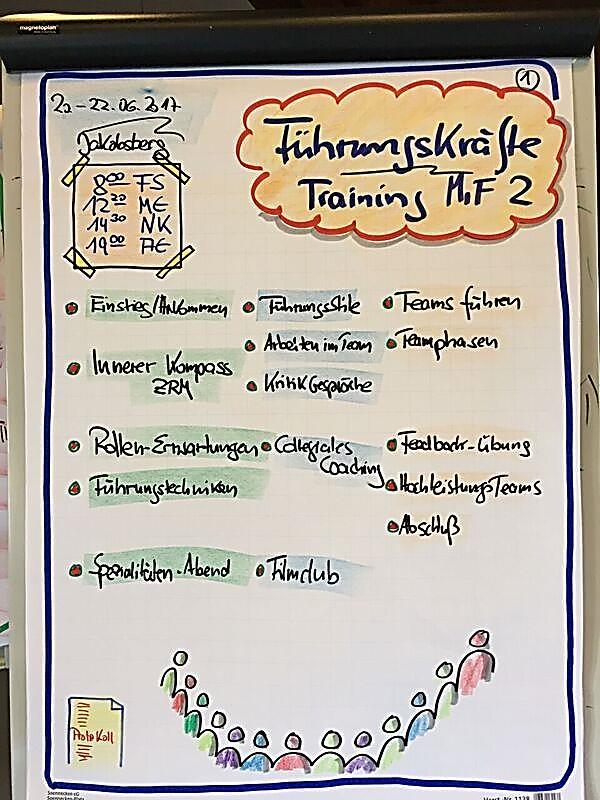 magnetoplan
1
20.-22.06.2017
Jakobsberg
8 00 FS
12 30 ME
14 30 NK
19 00 AE
Führungskräfte
Training MiF 2
Einstieg/Ankommen
Innerer Kompass
ZRM
Rollen-Erwartungen
Führungstechniken
Spezialitäten-Abend
Führungsstile
Arbeiten im Team
Kritikgespräche
Collegiales
Coaching
Filmclub
Teams führen
Teamphasen
Feedback-Übung
HochleistungsTeams
Abschluß
Protokoll
Soennecken eG